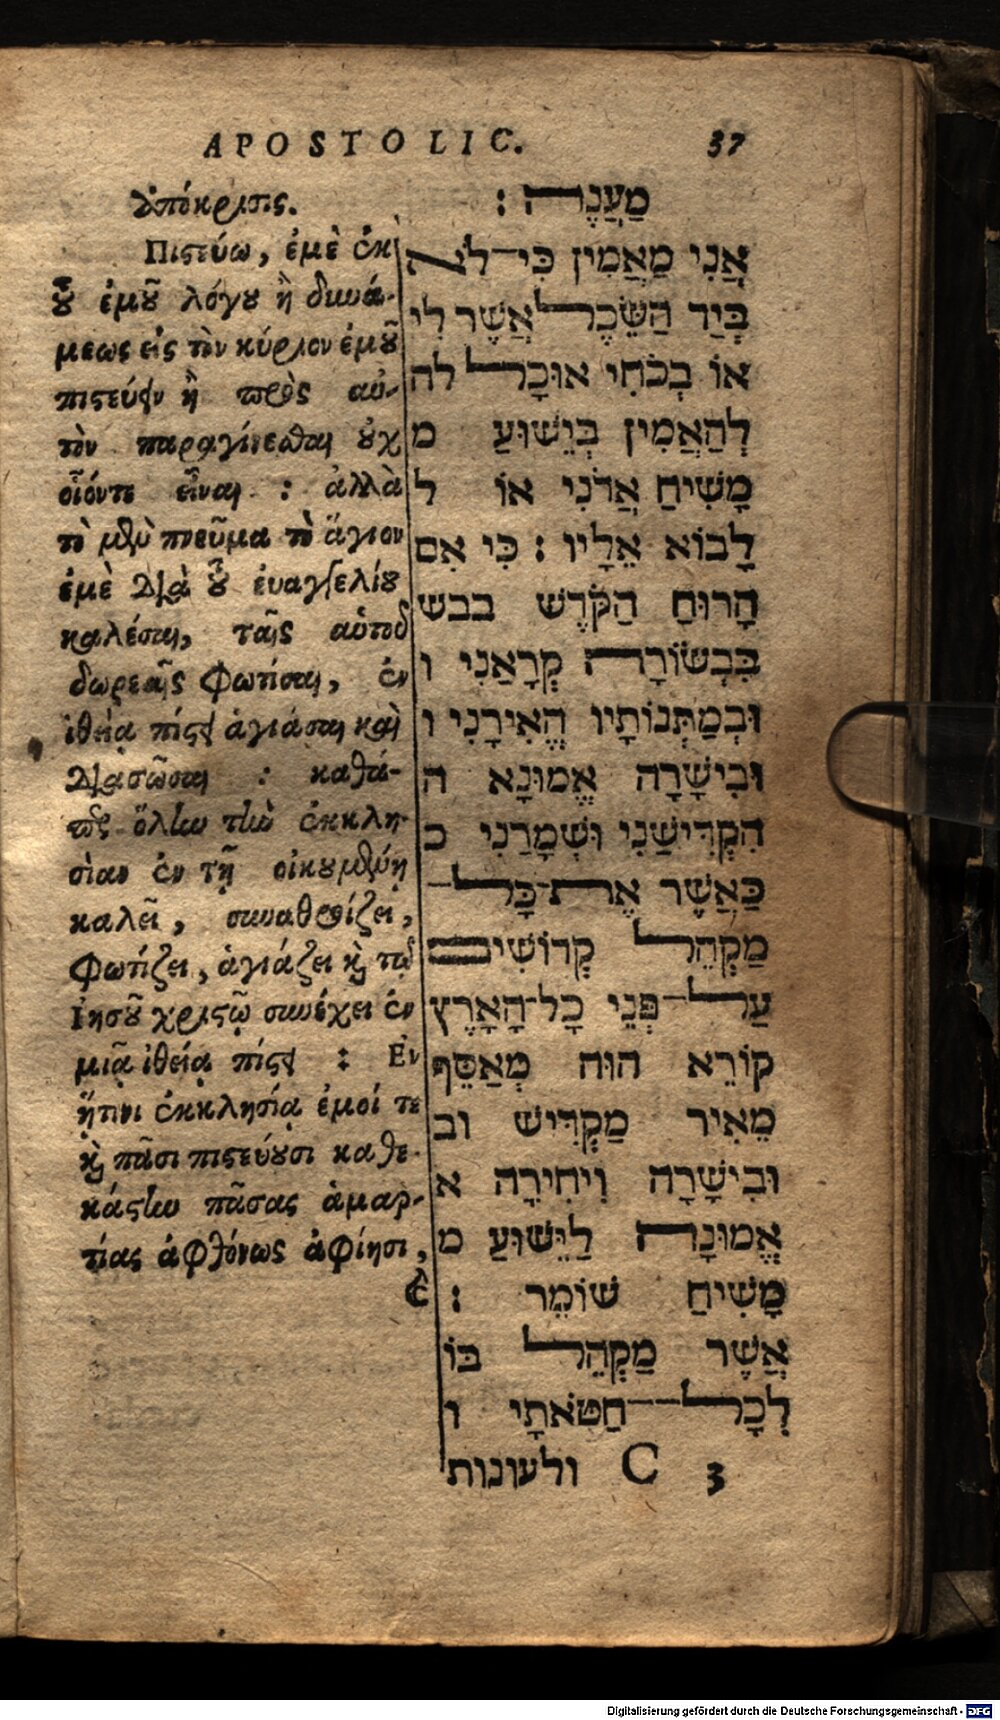 APOSTOLIC. 37
Ὑπόκρισις.
Πιστεύω, ἐμὲ ἐκ
τοῦ ἐμοῦ λόγου ἢ δυνά-
μεως εἰς τὸν κύριον ἐμοῦ
πιστεύειν ἢ πρὸς αὐ-
τὸν παραγίνεσθαι οὐχ
οἷόντε εἶναι : ἀλλὰ
τὸ μὲν πνεῦμα τὸ ἅγιον
ἐμὲ διὰ τοῦ ἐυαγγελίου
καλέσαι, ταῖς αὑτοῦ
δωρεαῖς φωτίσαι, ἐν
ἰθείᾳ πίστει ἁγιάσαι καὶ
διασῶσαι : καθά-
περ ὅλην τὴν ἐκκλη-
σίαν ἐν τῇ οἰκουμένῃ
καλεῖ, συναθροίζει,
φωτίζει, ἁγιάζει καὶ τῷ
Ἰησοῦ χριστῷ συνέχει ἐν
μιᾷ ἰθείᾳ πίστει : Ἐν
ᾗτινι ἐκκλησίᾳ ἐμοί τε
καὶ πᾶσι πιστεύουσι καθε-
κάστην πᾶσας ἁμαρ-
τίας ἀφθόνως ἀφίησι,
מַעֲנֶה :
אֲנִי מַאֲמִין כִּי־לֹא
בְּיַד הַשֵּׂכֶל אֲשֶׁר לִי
אוֹ בְכֹחִי אוּכָל לה
לְהַאֲמִין בְּיֵשׁוּעַ מ
מָשִׁיחַ אֲדֹנִי אוֹ ל
לָבוֹא אֵלָיו : כִּי אִם
הָרוּחַ הַקֹּדֶשׁ בבש
בִּבְשׂוֹרָה קְרָאַנִי ו
וּבְמַתְּנוֹתָיו הֱאִירָנִי ו
וּבִישָׁרָה אֱמוּנָא ה
הִקְדִּישַׁנִי וּשְׁמָרַנִי כ
כַּאֲשֶׁר אֶת־כָּל־
מַקְהֵל קְדוֹשִׁים
עַל־פְּנֵי כָל־הָאָרֶץ
קוֹרֵא הוּה מְאַסֵּף
מֵאִיר מַקְדִּישׁ וב
וּבִישָׁרָה וִיחִירָה א
אֱמוּנָה לַיֵּשׁוּעַ מ
מָשִׁיחַ שׁוֹמֵר :
אֲשֶׁר מַקְהֵל בּוֹ
לְכָל־־חַטֹּאתָי ו
C 3 ולעונות